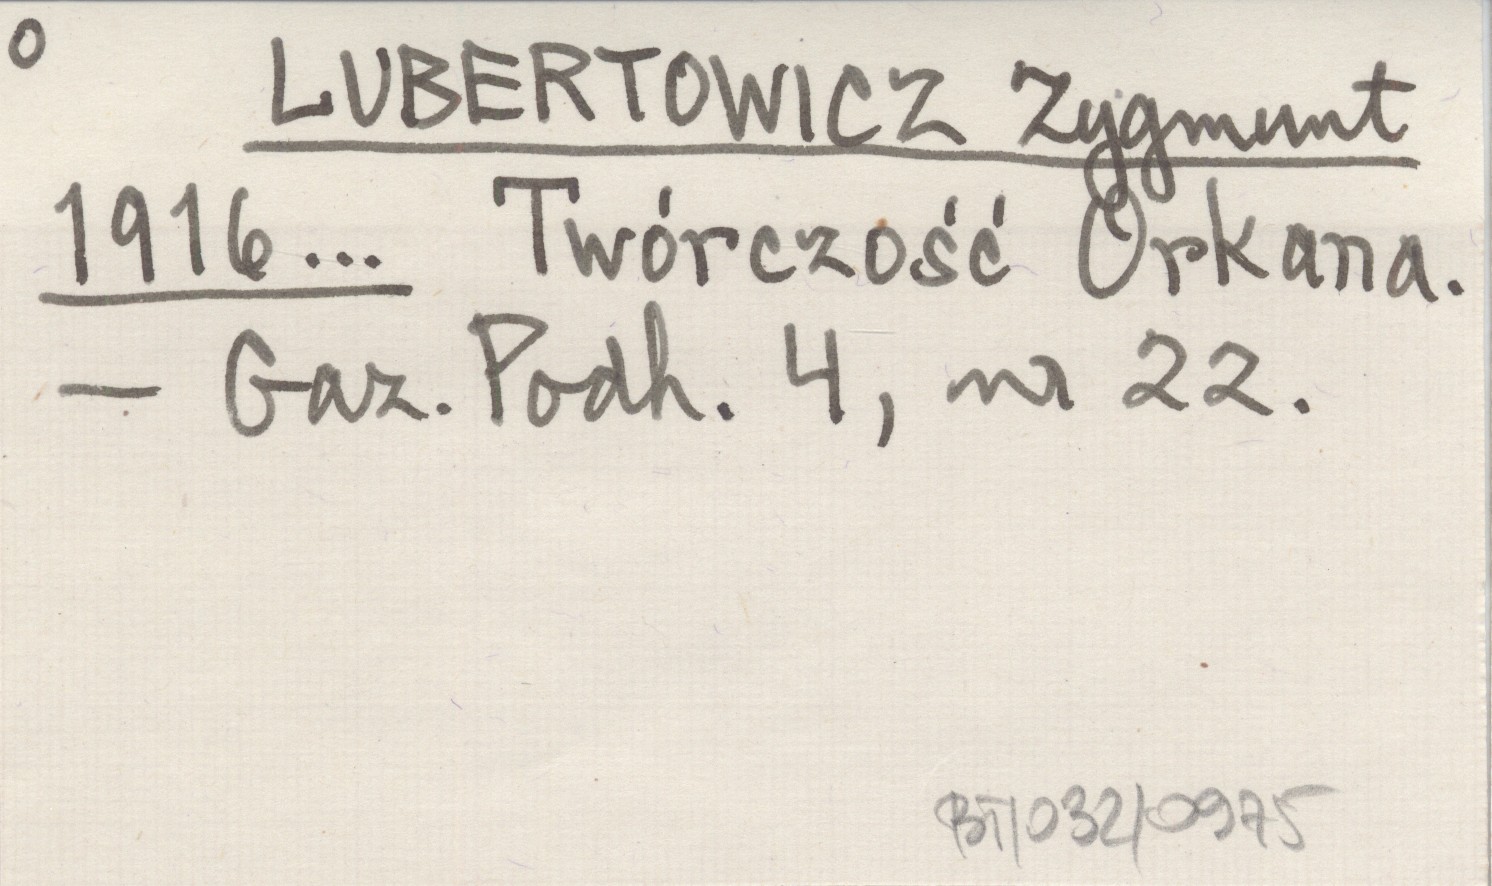 O
LUBERTOWICZ Zygmunt
1916... Twórczość Orkana.
— Gaz. Podh. 4, nr 22.
BT/032/0975